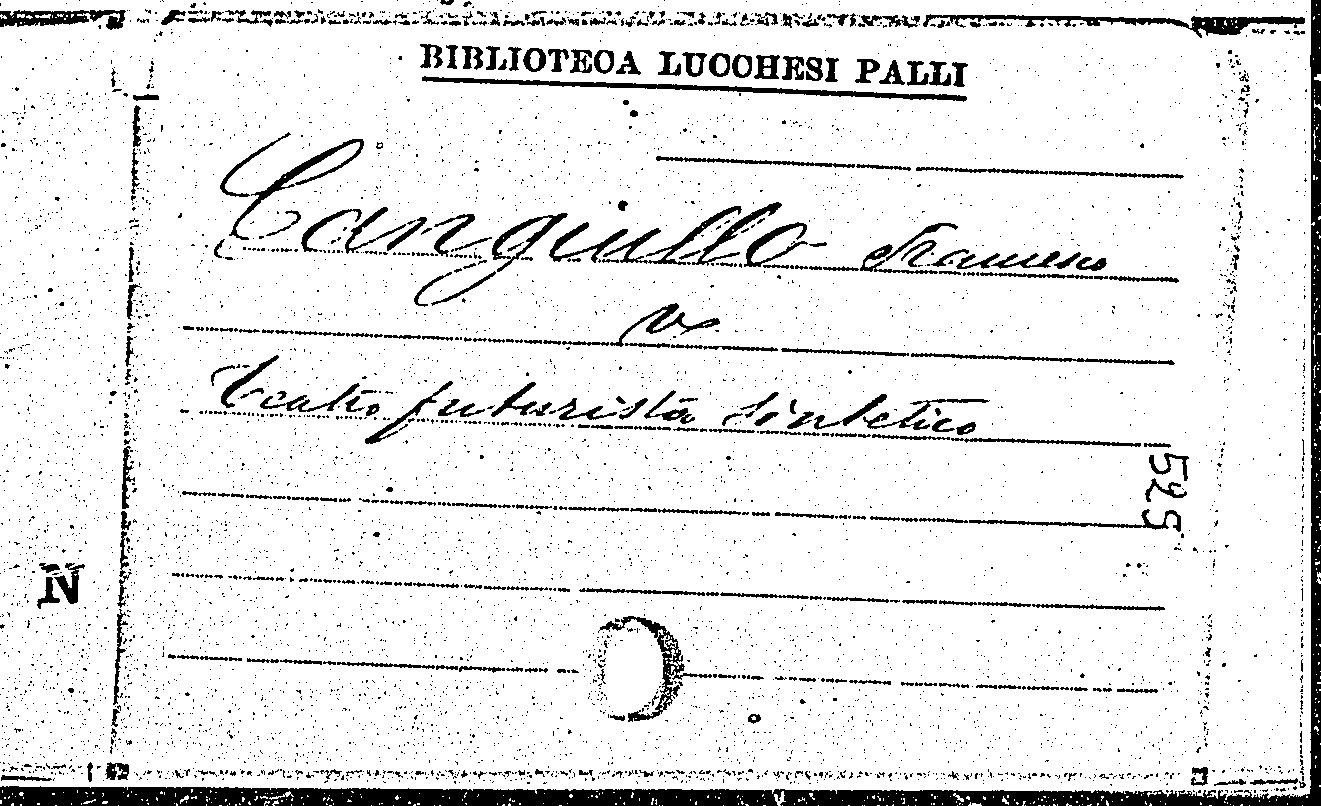 BIBLIOTECA LUCCHESI PALLI
Cangiullo Francesco
v.
Teatro futurista sintetico
525
N